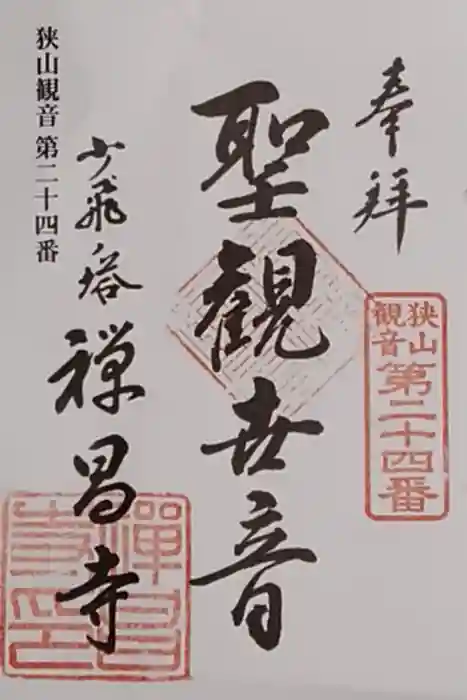 奉拝
狭山
観音
第二十四番
聖觀世音
少飛塔 禅昌寺
狭山観音 第二十四番